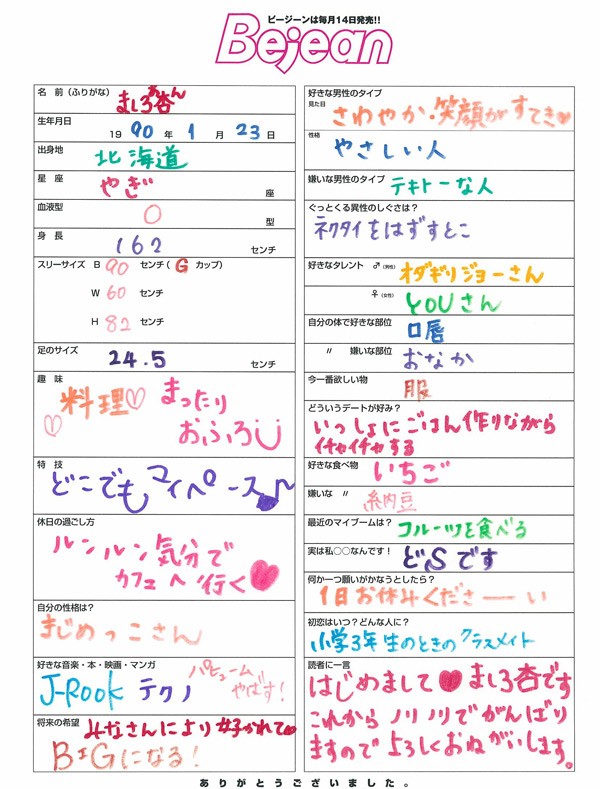 ビージーンは毎月14日発売!!
Bejean
名 前(ふりがな)
ましろ杏
あん
生年月日
1990年 1月 23日
出身地
北海道
星 座
やぎ座
血液型
O型
身 長
162センチ
スリーサイズ B 90 センチ( G カップ)
W 60 センチ
H 82 センチ
足のサイズ
24.5センチ
趣 味
料理♡ まったり
おふろ
特 技
どこでもマイペース♪
休日の過ごし方
ルンルン気分で
カフェへ行く♥
自分の性格は?
まじめっこさん
好きな音楽・本・映画・マンガ
J-Rook テクノ パヒュームやばす!
将来の希望
みなさんにより好かれて♥
BIGになる!
好きな男性のタイプ
見た目
さわやか・笑顔がすてき♥
性格
やさしい人
嫌いな男性のタイプ
テキトーな人
ぐっとくる異性のしぐさは?
ネクタイをはずすとこ
好きなタレント ♂(男性)
オダギリジョーさん
♀(女性)
YOUさん
自分の体で好きな部位
口唇
〃 嫌いな部位
おなか
今一番欲しい物
服
どういうデートが好み?
いっしょにごはん作りながら
イチャイチャする
好きな食べ物
いちご
嫌いな 〃
納豆
最近のマイブームは?
フルーツを食べる
実は私○○なんです!
どSです
何か一つ願いがかなうとしたら?
1日お休みくださーい
初恋はいつ?どんな人に?
小学3年生のときのクラスメイト
読者に一言
はじめまして♥ましろ杏です
これからノリノリでがんばり
ますのでよろしくおねがいします。
ありがとうございました。